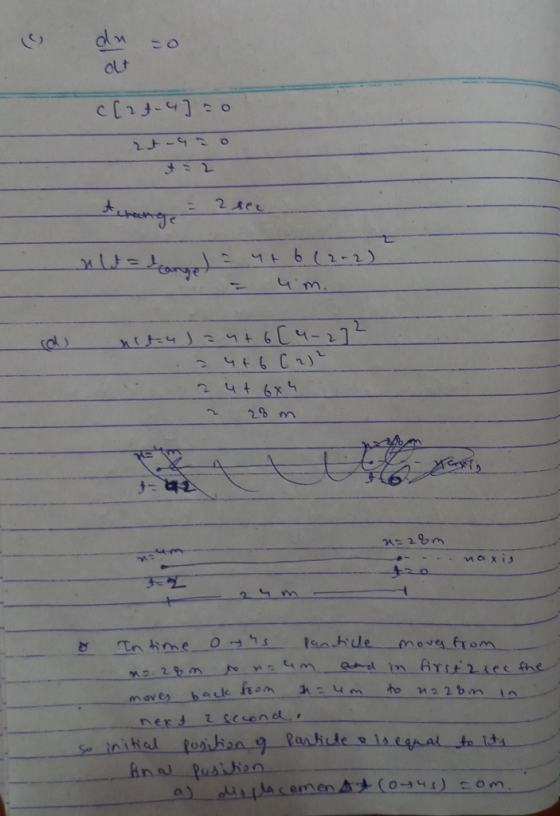 (c) dx/dt = 0
c[2t-4] = 0
2t-4 = 0
t = 2
tchange = 2 sec
x(t = tcange) = 4 + 6 (2-2)²
= 4 m.
(d) x(t=4) = 4 + 6 [4-2]²
= 4 + 6 (2)²
= 4 + 6×4
= 28 m
x=4m x=28m x axis
t= 2
x=4m x=28m x axis
t=2 t=0
24 m
In time 0→4s Particle moves from
x=28m to x=4m and in first 2 sec the
moves back from x=4m to x=28m in
next 2 second.
so initial position of Particle is equal to its
final position
a) displacement (0→4s) = 0m.